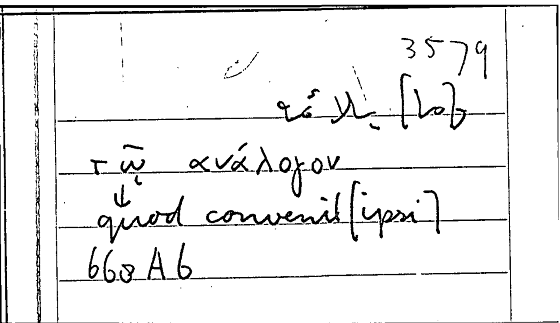 3579
τῷ ἀνάλογον
quod convenit [ipsi]
668 A6